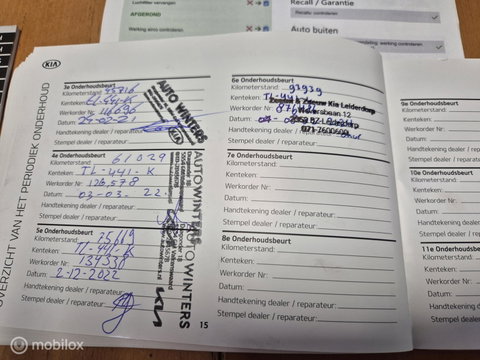 Luchtfilter vervangen
AFGEROND
Werking airco controleren.
Recall / Garantie
Recalls: controleren
Auto buiten
KIA
OVERZICHT VAN HET PERIODIEK ONDERHOUD
3e Onderhoudsbeurt
Kilometerstand:
Kenteken: TL-441-K
Werkorder Nr:
Datum:
Handtekening dealer / reparateur:
Stempel dealer / reparateur:
AUTO WINTERS
KIA
4e Onderhoudsbeurt
Kilometerstand: 61029
Kenteken: TL-441-K
Werkorder Nr: 126,578
Datum: 03-03-22
Handtekening dealer / reparateur:
Stempel dealer / reparateur:
AUTOWINTERS
5e Onderhoudsbeurt
Kilometerstand: 75619
Kenteken: TL-441-K
Werkorder Nr: 137338
Datum: 2-12-2022
Handtekening dealer / reparateur:
Stempel dealer / reparateur:
AUTOWINTERS
KIA
15
6e Onderhoudsbeurt
Kilometerstand: 93939
Kenteken: TL-441-K
Werkorder Nr:
Datum:
Handtekening dealer / reparateur:
Stempel dealer / reparateur:
Zeeuw & Zeeuw Kia Leiderdorp
071-7600609
7e Onderhoudsbeurt
Kilometerstand:
Kenteken:
Werkorder Nr:
Datum:
Handtekening dealer / reparateur:
Stempel dealer / reparateur:
8e Onderhoudsbeurt
Kilometerstand:
Kenteken:
Werkorder Nr:
Datum:
Handtekening dealer / reparateur:
Stempel dealer / reparateur:
9e Onderhoudsbeurt
Kilometerstand:
Kenteken:
Werkorder Nr:
Datum:
Handtekening dealer
Stempel dealer / rep
10e Onderhoudsbeurt
Kilometerstand:
Kenteken:
Werkorder Nr:
Datum:
Handtekening dealer
Stempel dealer / repa
11e Onderhoudsbeurt
Kilometerstand:
Kenteken:
Werkorder Nr:
Datum:
Handtekening dealer
Stempel dealer / repa
mobilox